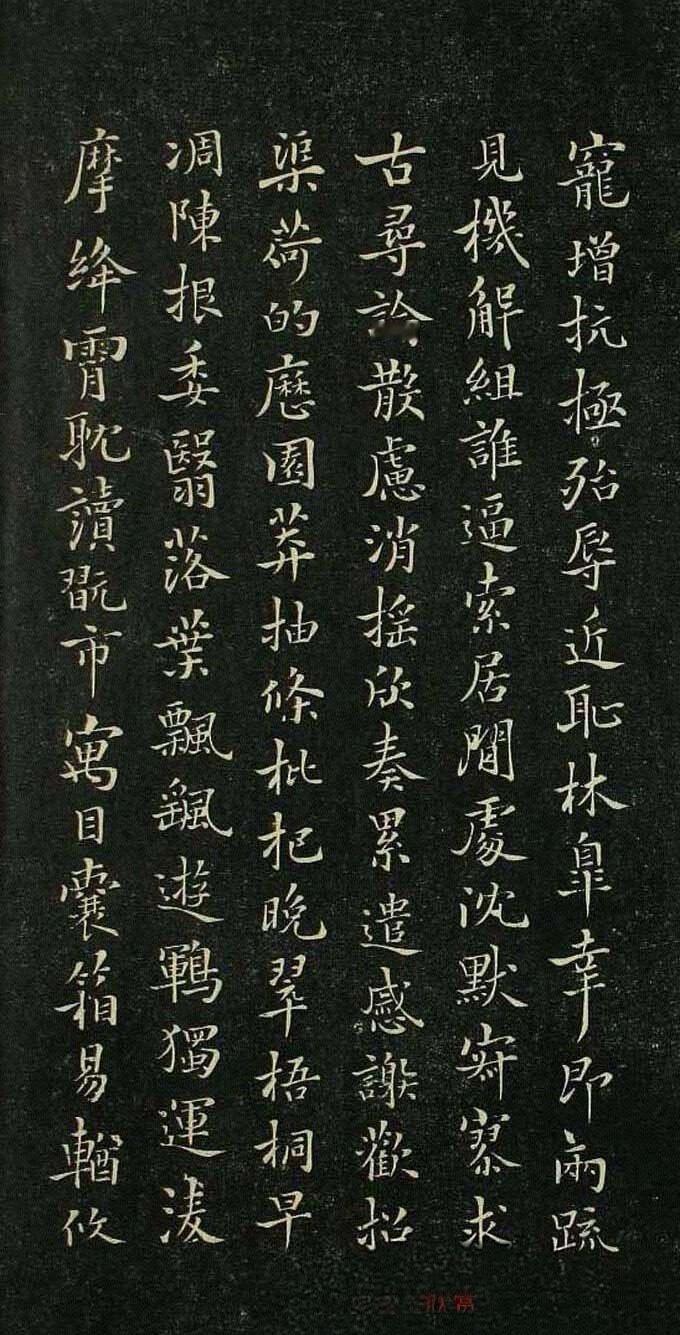 寵增抗極殆辱近恥林皐幸即兩疏
見機解組誰逼索居閒處沈默寂寥求
古尋論散慮消搖欣奏累遣感謝歡招
渠荷的歷園莽抽條枇杷晚翠梧桐早
凋陳根委翳落葉飄颻遊鶤獨運淩
摩絳霄耽讀翫市寓目囊箱易輶攸